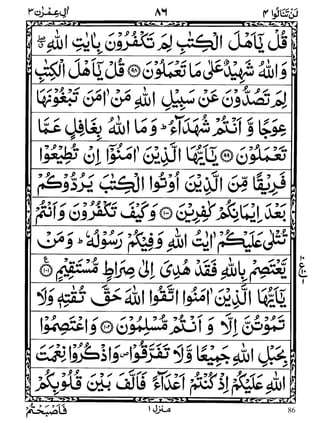 لَنْ تَنَالُوا ٤ ٨٦ اٰلِ عِمْرٰن ٣
قُلْ يٰۤاَهْلَ الْكِتٰبِ لِمَ تَكْفُرُوْنَ بِاٰيٰتِ اللّٰهِ
وَاللّٰهُ شَهِيْدٌ عَلٰى مَا تَعْمَلُوْنَ ﴿٩٨﴾ قُلْ يٰۤاَهْلَ الْكِتٰبِ
لِمَ تَصُدُّوْنَ عَنْ سَبِيْلِ اللّٰهِ مَنْ اٰمَنَ تَبْغُوْنَهَا
عِوَجًا وَّ اَنْتُمْ شُهَدَآءُ ؕ وَمَا اللّٰهُ بِغَافِلٍ عَمَّا
تَعْمَلُوْنَ ﴿٩٩﴾ يٰۤاَيُّهَا الَّذِيْنَ اٰمَنُوْۤا اِنْ تُطِيْعُوْا
فَرِيْقًا مِّنَ الَّذِيْنَ اُوْتُوا الْكِتٰبَ يَرُدُّوْكُمْ
بَعْدَ اِيْمَانِكُمْ كٰفِرِيْنَ ﴿١٠٠﴾ وَكَيْفَ تَكْفُرُوْنَ وَاَنْتُمْ
تُتْلٰى عَلَيْكُمْ اٰيٰتُ اللّٰهِ وَفِيْكُمْ رَسُوْلُهٗ ؕ وَمَنْ
يَّعْتَصِمْ بِاللّٰهِ فَقَدْ هُدِيَ اِلٰى صِرَاطٍ مُّسْتَقِيْمٍ ﴿١٠١﴾
يٰۤاَيُّهَا الَّذِيْنَ اٰمَنُوا اتَّقُوا اللّٰهَ حَقَّ تُقٰتِهٖ وَلَا
تَمُوْتُنَّ اِلَّا وَ اَنْتُمْ مُّسْلِمُوْنَ ﴿١٠٢﴾ وَاعْتَصِمُوْا
بِحَبْلِ اللّٰهِ جَمِيْعًا وَّلَا تَفَرَّقُوْا ۪ وَاذْكُرُوْا نِعْمَتَ
اللّٰهِ عَلَيْكُمْ اِذْ كُنْتُمْ اَعْدَآءً فَاَلَّفَ بَيْنَ قُلُوْبِكُمْ
فَاَصْبَحْتُمْ منزل ١ 86